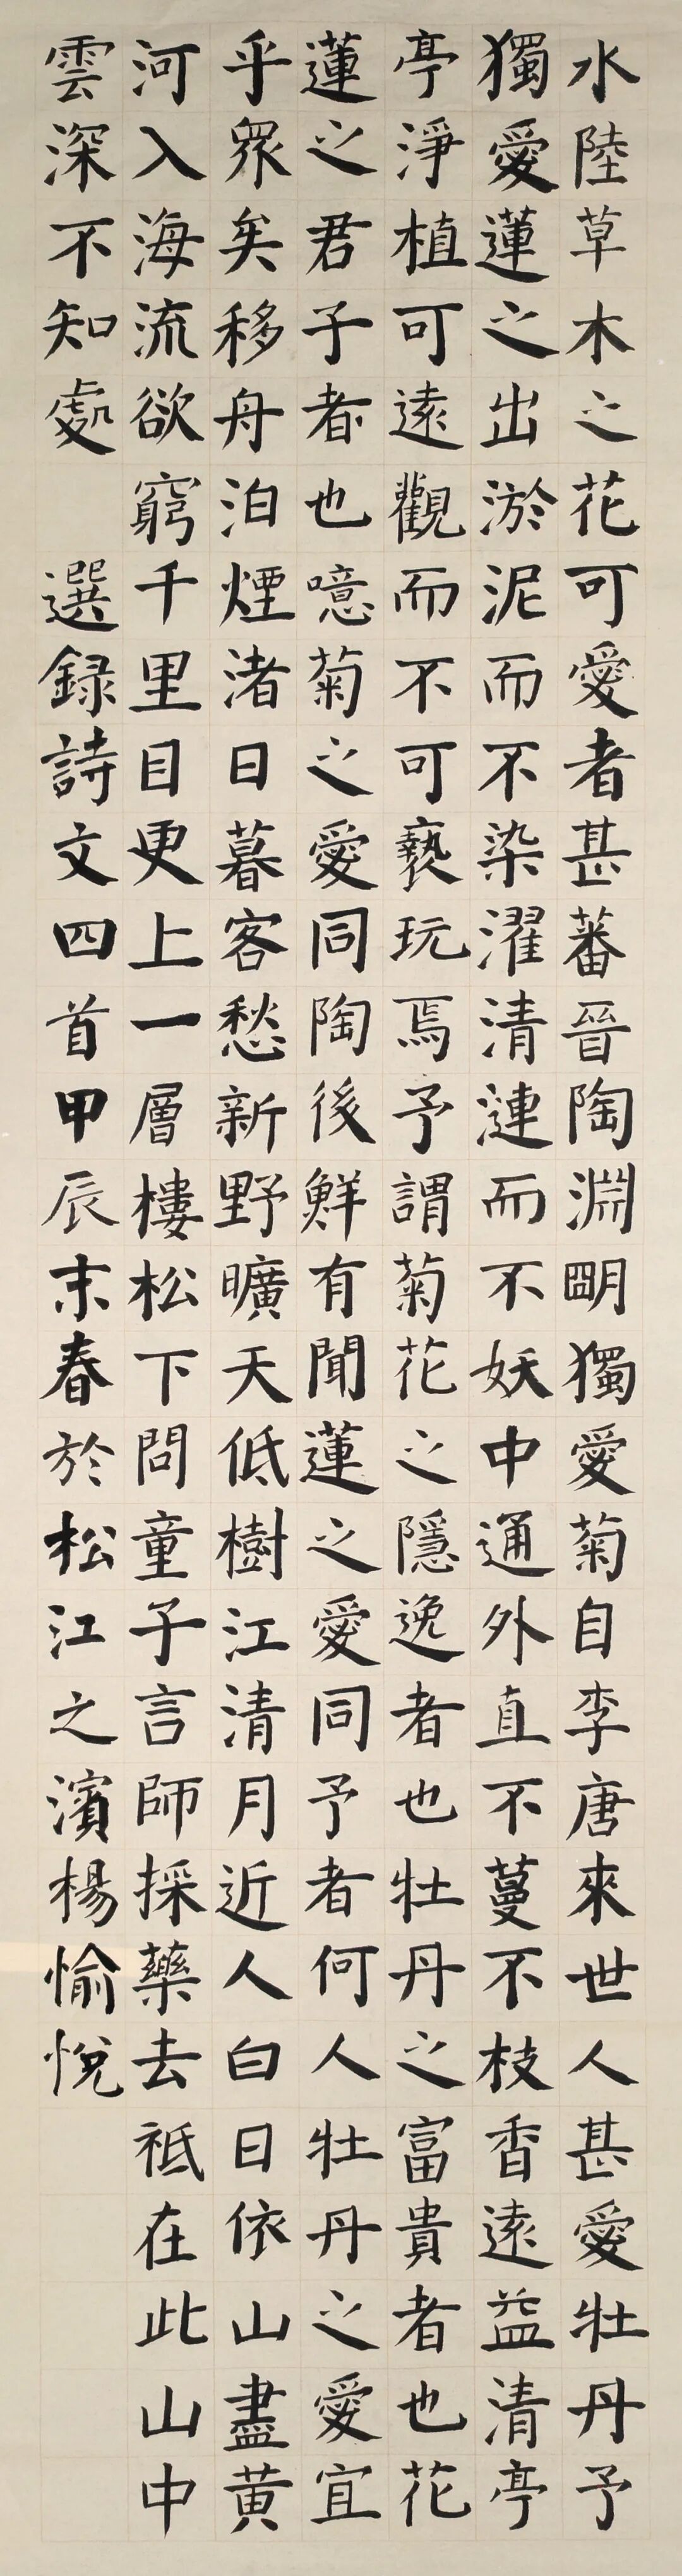 水陸草木之花可愛者甚蕃晉陶淵明獨愛菊自李唐來世人甚愛牡丹予
獨愛蓮之出淤泥而不染濯清漣而不妖中通外直不蔓不枝香遠益清亭
亭淨植可遠觀而不可褻玩焉予謂菊花之隱逸者也牡丹之富貴者也花
蓮之君子者也噫菊之愛同陶後鮮有聞蓮之愛同予者何人牡丹之愛宜
乎眾矣移舟泊煙渚日暮客愁新野曠天低樹江清月近人白日依山盡黃
河入海流欲窮千里目更上一層樓松下問童子言師採藥去祗在此山中
雲深不知處 選録詩文四首甲辰末春於松江之濱楊愉悅